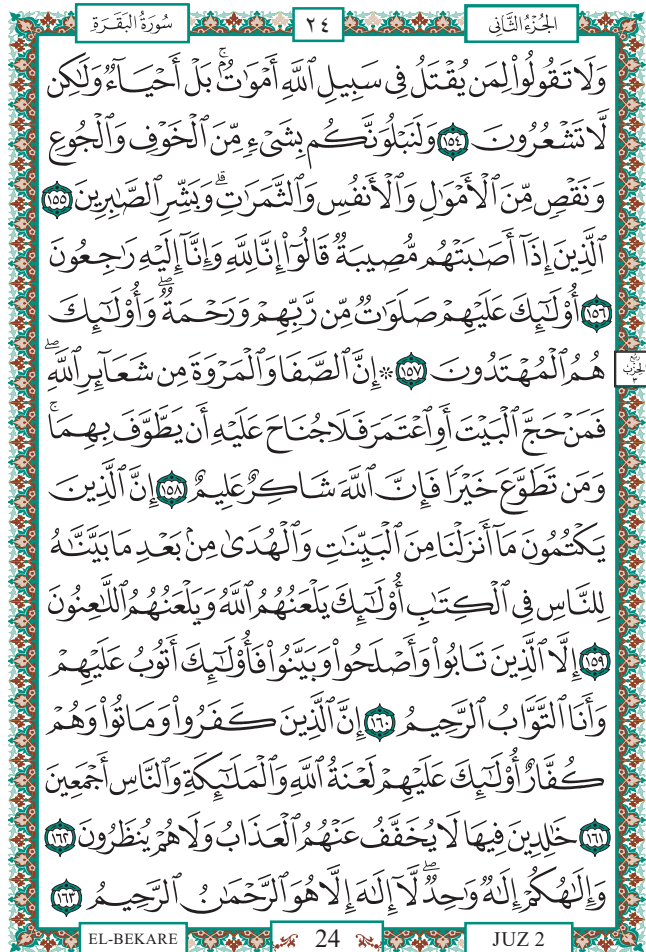 سُورَةُ الْبَقَرَةِ
٢٤
الجُزْءُ الثَّانِى
وَلَا تَقُولُوا۟ لِمَن يُقْتَلُ فِى سَبِيلِ ٱللَّهِ أَمْوَٰتٌۢ ۚ بَلْ أَحْيَآءٌ وَلَٰكِن
لَّا تَشْعُرُونَ ١٥٤ وَلَنَبْلُوَنَّكُم بِشَىْءٍ مِّنَ ٱلْخَوْفِ وَٱلْجُوعِ
وَنَقْصٍ مِّنَ ٱلْأَمْوَٰلِ وَٱلْأَنفُسِ وَٱلثَّمَرَٰتِ ۗ وَبَشِّرِ ٱلصَّٰبِرِينَ ١٥٥
ٱلَّذِينَ إِذَآ أَصَٰبَتْهُم مُّصِيبَةٌ قَالُوٓا۟ إِنَّا لِلَّهِ وَإِنَّآ إِلَيْهِ رَٰجِعُونَ
١٥٦ أُو۟لَٰٓئِكَ عَلَيْهِمْ صَلَوَٰتٌ مِّن رَّبِّهِمْ وَرَحْمَةٌ ۖ وَأُو۟لَٰٓئِكَ
هُمُ ٱلْمُهْتَدُونَ ١٥٧ ۞ إِنَّ ٱلصَّفَا وَٱلْمَرْوَةَ مِن شَعَآئِرِ ٱللَّهِ ۖ
ربع الحزب ٣
فَمَنْ حَجَّ ٱلْبَيْتَ أَوِ ٱعْتَمَرَ فَلَا جُنَاحَ عَلَيْهِ أَن يَطَّوَّفَ بِهِمَا ۚ
وَمَن تَطَوَّعَ خَيْرًا فَإِنَّ ٱللَّهَ شَاكِرٌ عَلِيمٌ ١٥٨ إِنَّ ٱلَّذِينَ
يَكْتُمُونَ مَآ أَنزَلْنَا مِنَ ٱلْبَيِّنَٰتِ وَٱلْهُدَىٰ مِنۢ بَعْدِ مَا بَيَّنَّٰهُ
لِلنَّاسِ فِى ٱلْكِتَٰبِ أُو۟لَٰٓئِكَ يَلْعَنُهُمُ ٱللَّهُ وَيَلْعَنُهُمُ ٱللَّٰعِنُونَ
١٥٩ إِلَّا ٱلَّذِينَ تَابُوا۟ وَأَصْلَحُوا۟ وَبَيَّنُوا۟ فَأُو۟لَٰٓئِكَ أَتُوبُ عَلَيْهِمْ
وَأَنَا ٱلتَّوَّابُ ٱلرَّحِيمُ ١٦٠ إِنَّ ٱلَّذِينَ كَفَرُوا۟ وَمَاتُوا۟ وَهُمْ
كُفَّارٌ أُو۟لَٰٓئِكَ عَلَيْهِمْ لَعْنَةُ ٱللَّهِ وَٱلْمَلَٰٓئِكَةِ وَٱلنَّاسِ أَجْمَعِينَ
١٦١ خَٰلِدِينَ فِيهَا لَا يُخَفَّفُ عَنْهُمُ ٱلْعَذَابُ وَلَا هُمْ يُنظَرُونَ ١٦٢
وَإِلَٰهُكُمْ إِلَٰهٌ وَٰحِدٌ ۖ لَّآ إِلَٰهَ إِلَّا هُوَ ٱلرَّحْمَٰنُ ٱلرَّحِيمُ ١٦٣
EL-BEKARE
24
JUZ 2